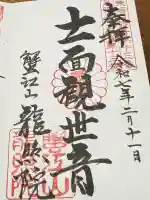 奉拝
令和七年二月十一日
十一面観世音
蟹江山
龍照院